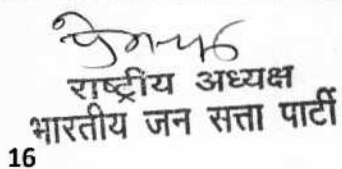 राष्ट्रीय अध्यक्ष
भारतीय जन सत्ता पार्टी
16